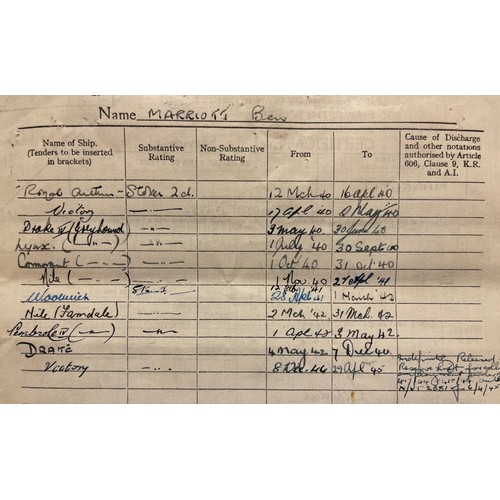 Name MARRIOTT Ben
Name of Ship. (Tenders to be inserted in brackets) Substantive Rating Non-Substantive Rating From To Cause of Discharge and other notations authorised by Article 606, Clause 9, K.R. and A.I.
Royal Arthur Stoker 2 cl. 12 Mch 40 16 apl 40
Victory —..— 17 apl 40 2 May 40
Drake IV (Greyhound) —..— 3 may 40 30 June 40
Lynx (—"—) —..— 1 July '40 30 Sept 40
Cormorant (—..—) —..— 1 Oct 40 31 Oct 40
Nile (—..—) —..— 1 Nov 40 27 apl '41
Woolwich 28 Apl 41 1 March 42
Nile (Lamdale) —..— 2 Mch '42 31 Mch 42
Pembroke IV (—..—) —..— 1 apl 42 3 may 42.
DRAKE 4 may 42 7 Dec
Victory —..— 8 Dec 44 29 apl 45 Released